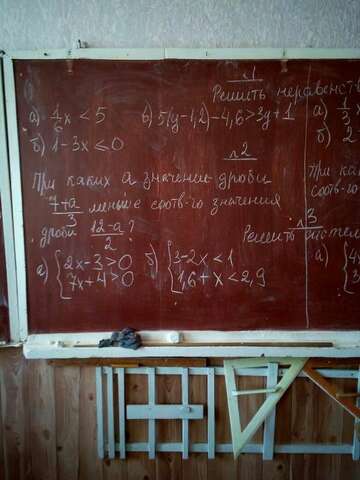 №1
Решить неравенств
а) 1/6 x < 5 в) 5(y-1,2)-4,6>3y+1
б) 1-3x≤0
№2
При каких а значении дроби
7+a/3 меньше соотв-го значения
дроби 12-a/2?
№3
Решить систем
а) {2x-3>0 б) {3-2x<1
7x+4>0 1,6+x<2,9
а) 1/3
б) 2
При ка
соотв-го
а) {4x